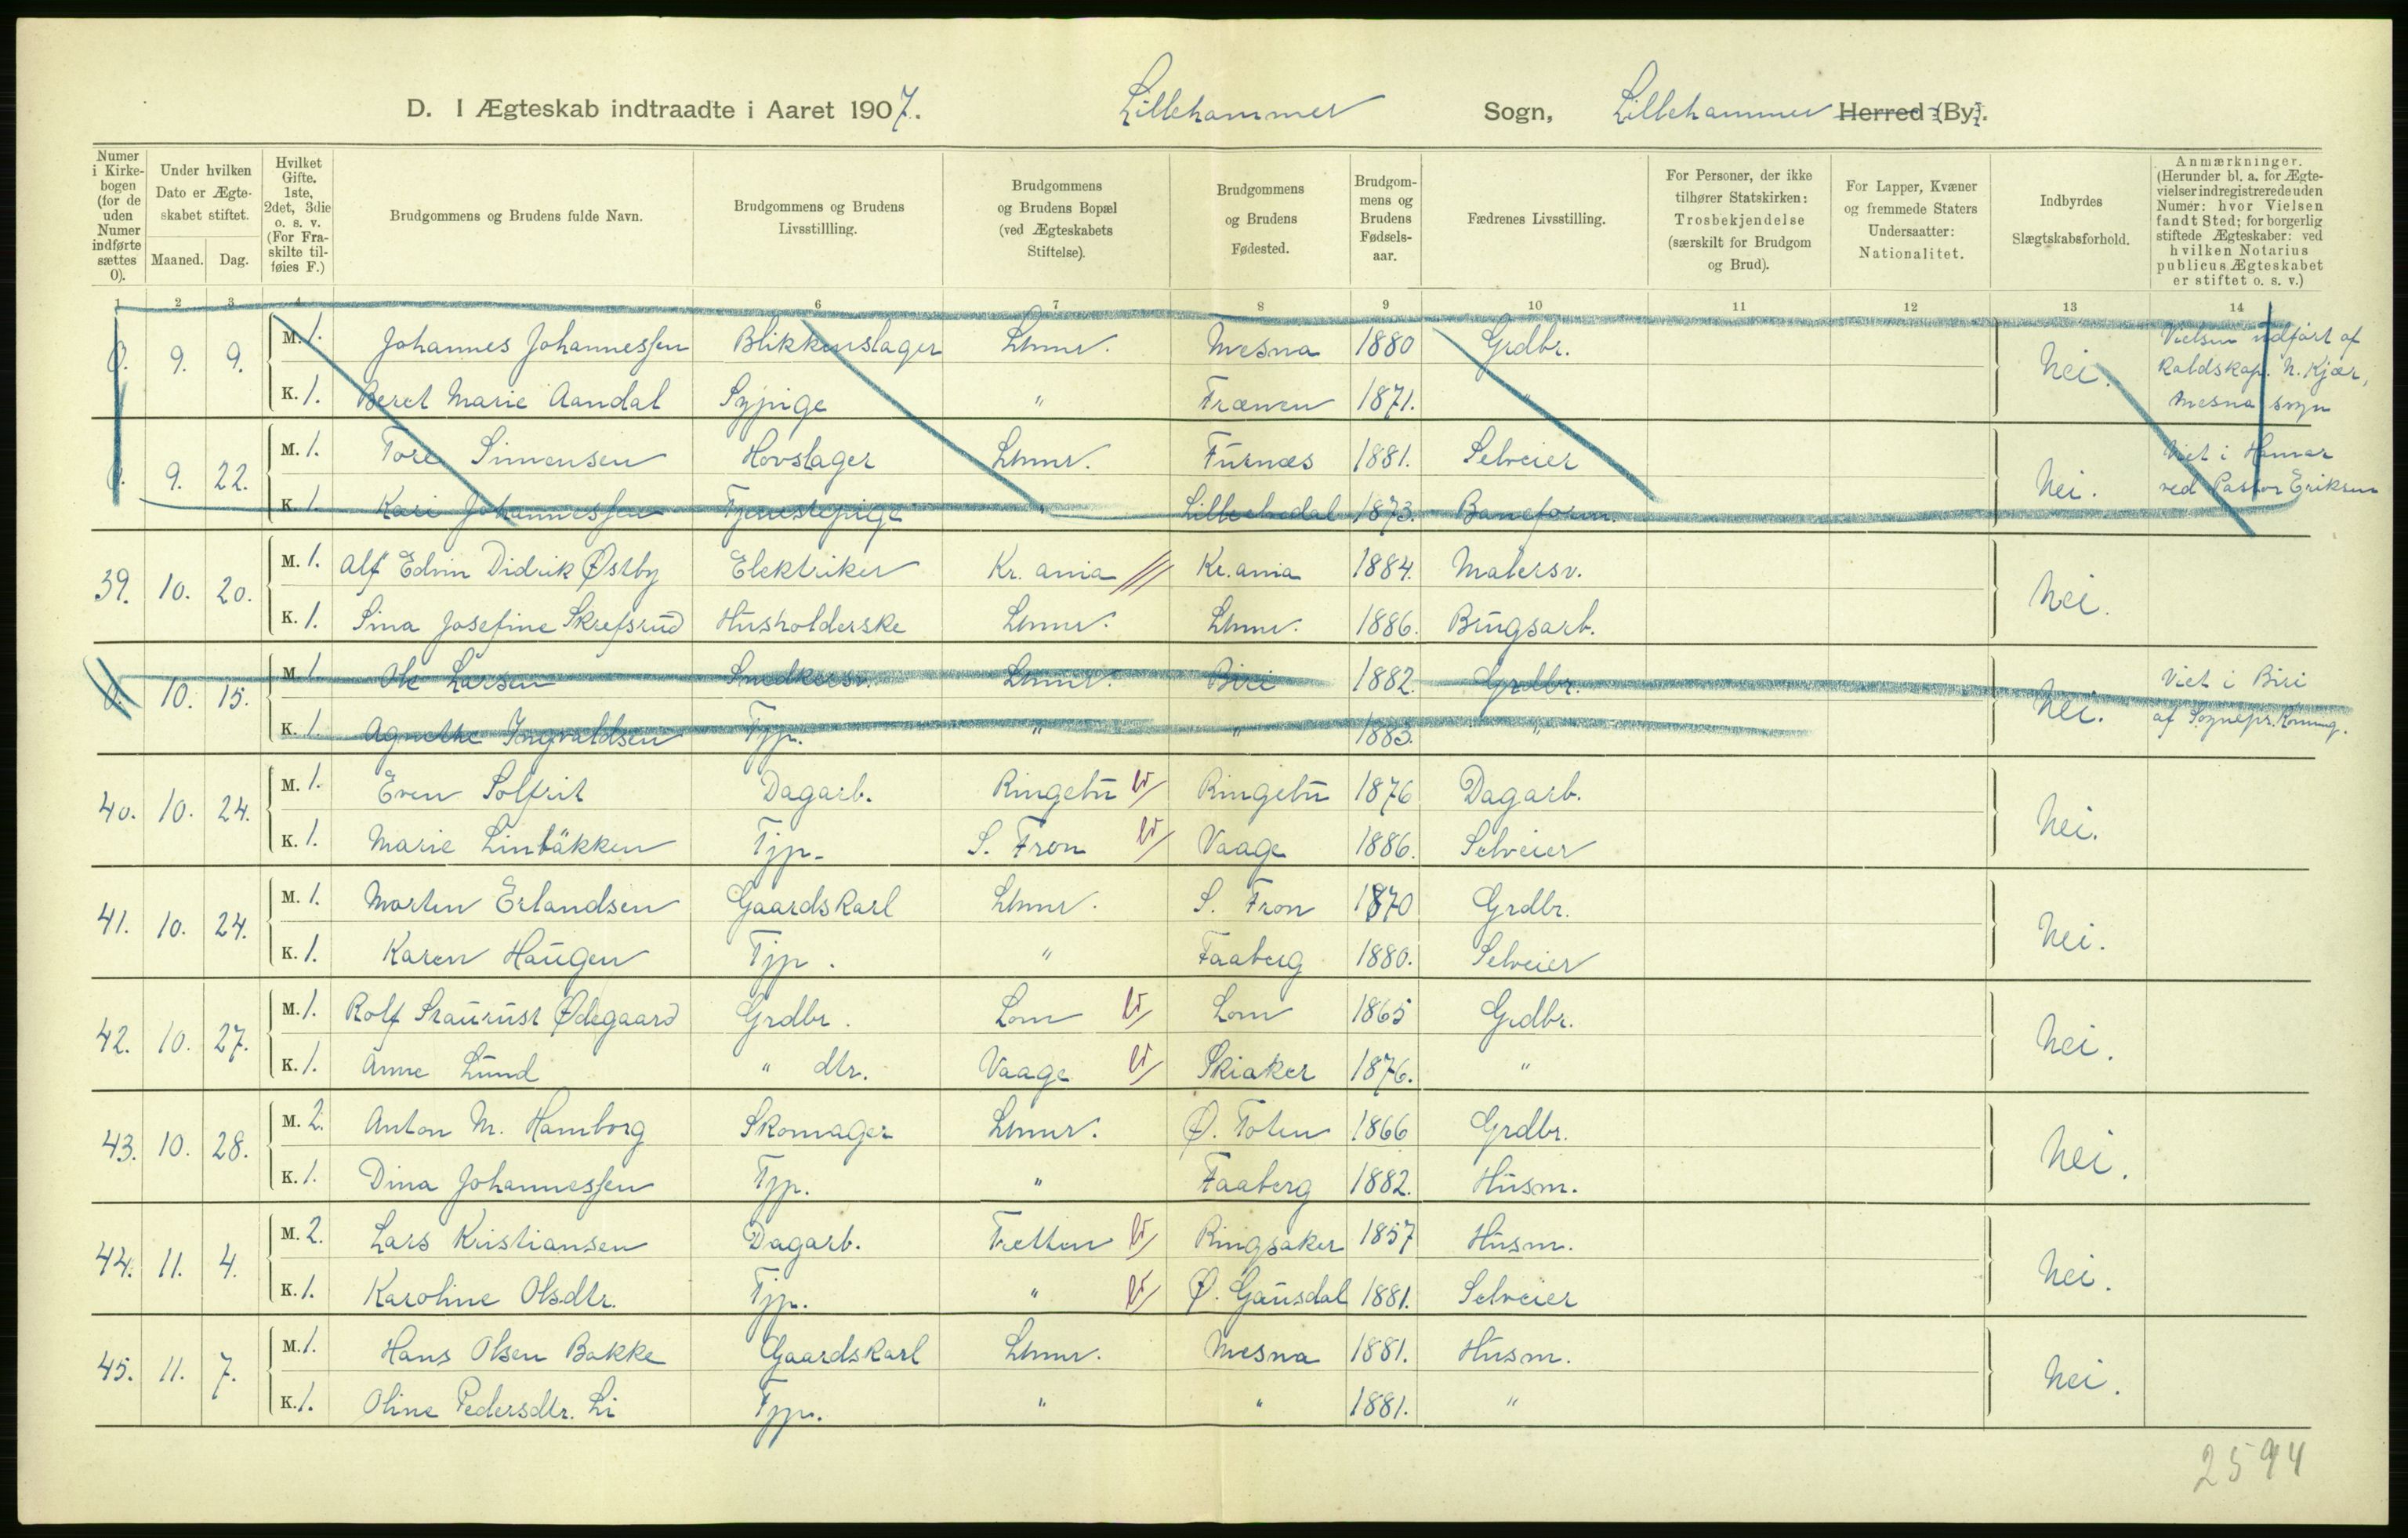 D. I Ægteskab indtraadte i Aaret 1907. Lillehammer Sogn, Lillehammer Herred (By).
Numer i Kirkebogen (for de uden Numer indførte sættes 0).
Under hvilken Dato er Ægteskabet stiftet.
Maaned. Dag.
Hvilket Gifte. 1ste, 2det, 3die o. s. v. (For Fraskilte tilføies F.)
Brudgommens og Brudens fulde Navn.
Brudgommens og Brudens Livsstillling.
Brudgommens og Brudens Bopæl (ved Ægteskabets Stiftelse).
Brudgommens og Brudens Fødested.
Brudgommens og Brudens Fødselsaar.
Fædrenes Livsstilling.
For Personer, der ikke tilhører Statskirken: Trosbekjendelse (særskilt for Brudgom og Brud).
For Lapper, Kvæner og fremmede Staters Undersaatter: Nationalitet.
Indbyrdes Slægtskabsforhold.
Anmærkninger. (Herunder bl. a. for Ægtevielser indregistrerede uden Numer: hvor Vielsen fandt Sted; for borgerlig stiftede Ægteskaber: ved hvilken Notarius publicus Ægteskabet er stiftet o. s. v.)
1 2 3 4 6 7 8 9 10 11 12 13 14
0. 9. 9. M. 1. Johannes Johannessen Blikkenslager Lhmr. Mesna 1880 Grdbr. Nei. Vielsen udført af Kaldskap. N. Kjær, Mesna sogn
K. 1. Beret Marie Aandal Sypige " Frænen 1871. "
0. 9. 22. M. 1. Tore Simensen Hovslager Lhmr. Furnæs 1881. Selveier Nei. Viet i Hamar ved Pastor Eriksen
K. 1. Kari Johannessen Tjenestepige " Lilleelvedal 1873. Baneform.
39. 10. 20. M. 1. Alf Edvin Didrik Østby Elektriker Kr.ania Kr.ania 1884. Malersv. Nei.
K. 1. Sina Josefine Skrefsrud Husholderske Lhmr. Lhmr. 1886. Brugsarb.
0. 10. 15. M. 1. Ole Larsen Snedkersv. Lhmr. Biri 1882. Grdbr. Nei. Viet i Biri af Sognepr. Konning.
K. 1. Agnethe Ingvaldsen Tjp. " " 1883. "
40. 10. 24. M. 1. Even Solfrit Dagarb. Ringebu Ringebu 1876 Dagarb. Nei.
K. 1. Marie Linbäkken Tjp. S. Fron Vaage 1886. Selveier
41. 10. 24. M. 1. Morten Erlandsen Gaardskarl Lhmr. S. Fron 1870 Grdbr. Nei.
K. 1. Karen Haugen Tjp. " Faaberg 1880. Selveier
42. 10. 27. M. 1. Rolf Staurust Ødegaard Grdbr. Lom Lom 1865 Grdbr. Nei.
K. 1. Anne Lund " dtr. Vaage Skiaker 1876. "
43. 10. 28. M. 2. Anton M. Hamborg Skomager Lhmr. Ø. Toten 1866 Grdbr. Nei.
K. 1. Dina Johannessen Tjp. " Faaberg 1882. Husm.
44. 11. 4. M. 2. Lars Kristiansen Dagarb. Fretten Ringsaker 1857 Husm. Nei.
K. 1. Karoline Olsdtr. Tjp. " Ø. Gausdal 1881. Selveier
45. 11. 7. M. 1. Hans Olsen Bakke Gaardskarl Lhmr. Mesna 1881. Husm. Nei.
K. 1. Oline Pedersdtr. Li Tjp. " " 1881. "
2594